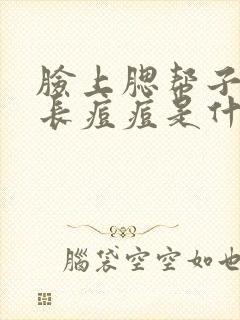 臉上腮帮子
長痘痘是什
腦袋空空如也